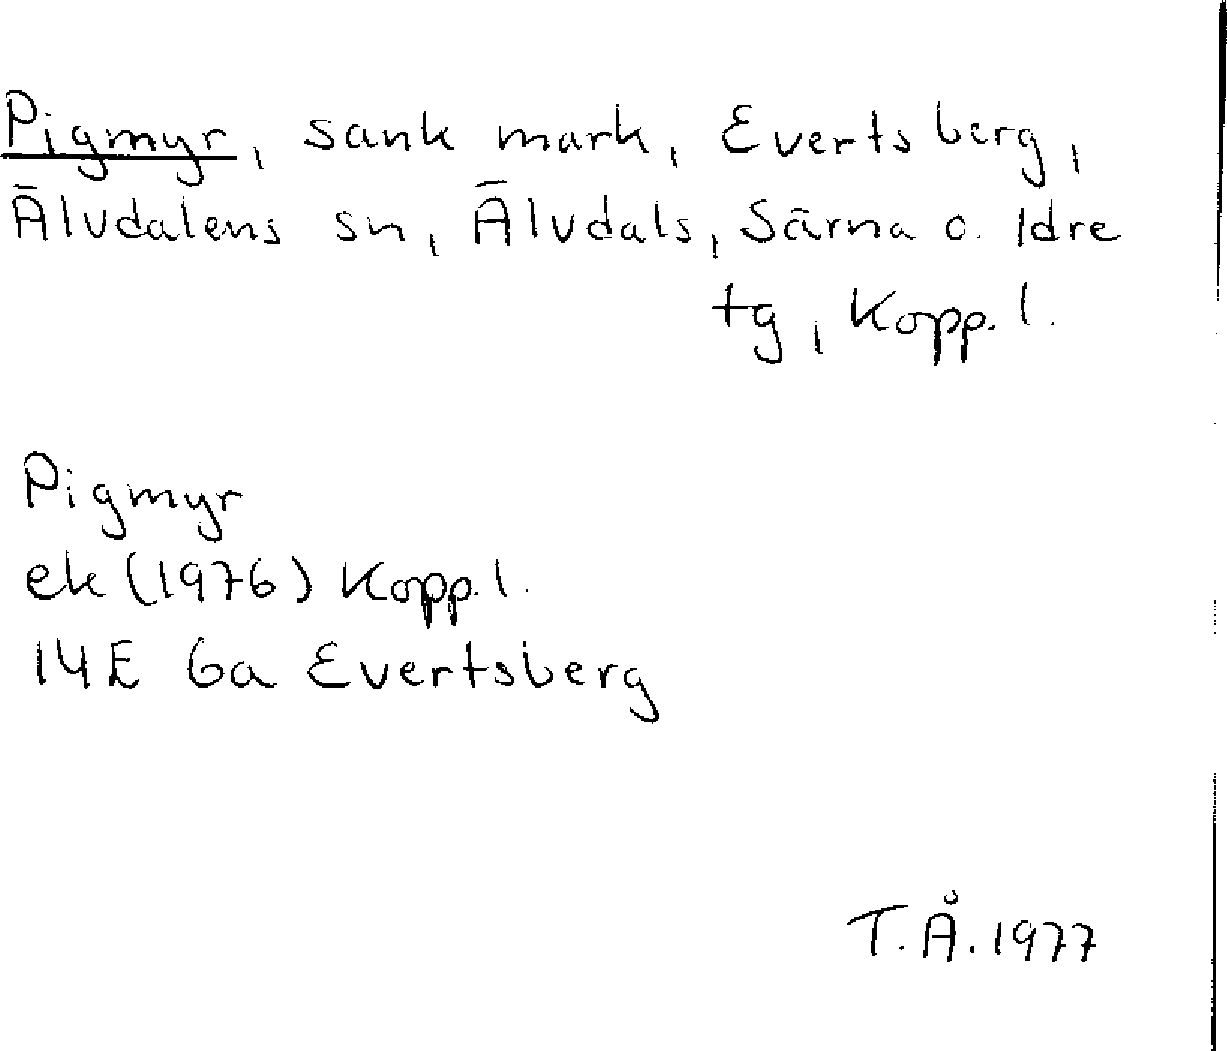 Pigmyr, sank mark, Evertsberg,
Älvdalens sn, Älvdals, Särna o. Idre
tg, Kopp. l.
Pigmyr
ek (1976) Kopp. l.
14E 6a Evertsberg
T.Å. 1977